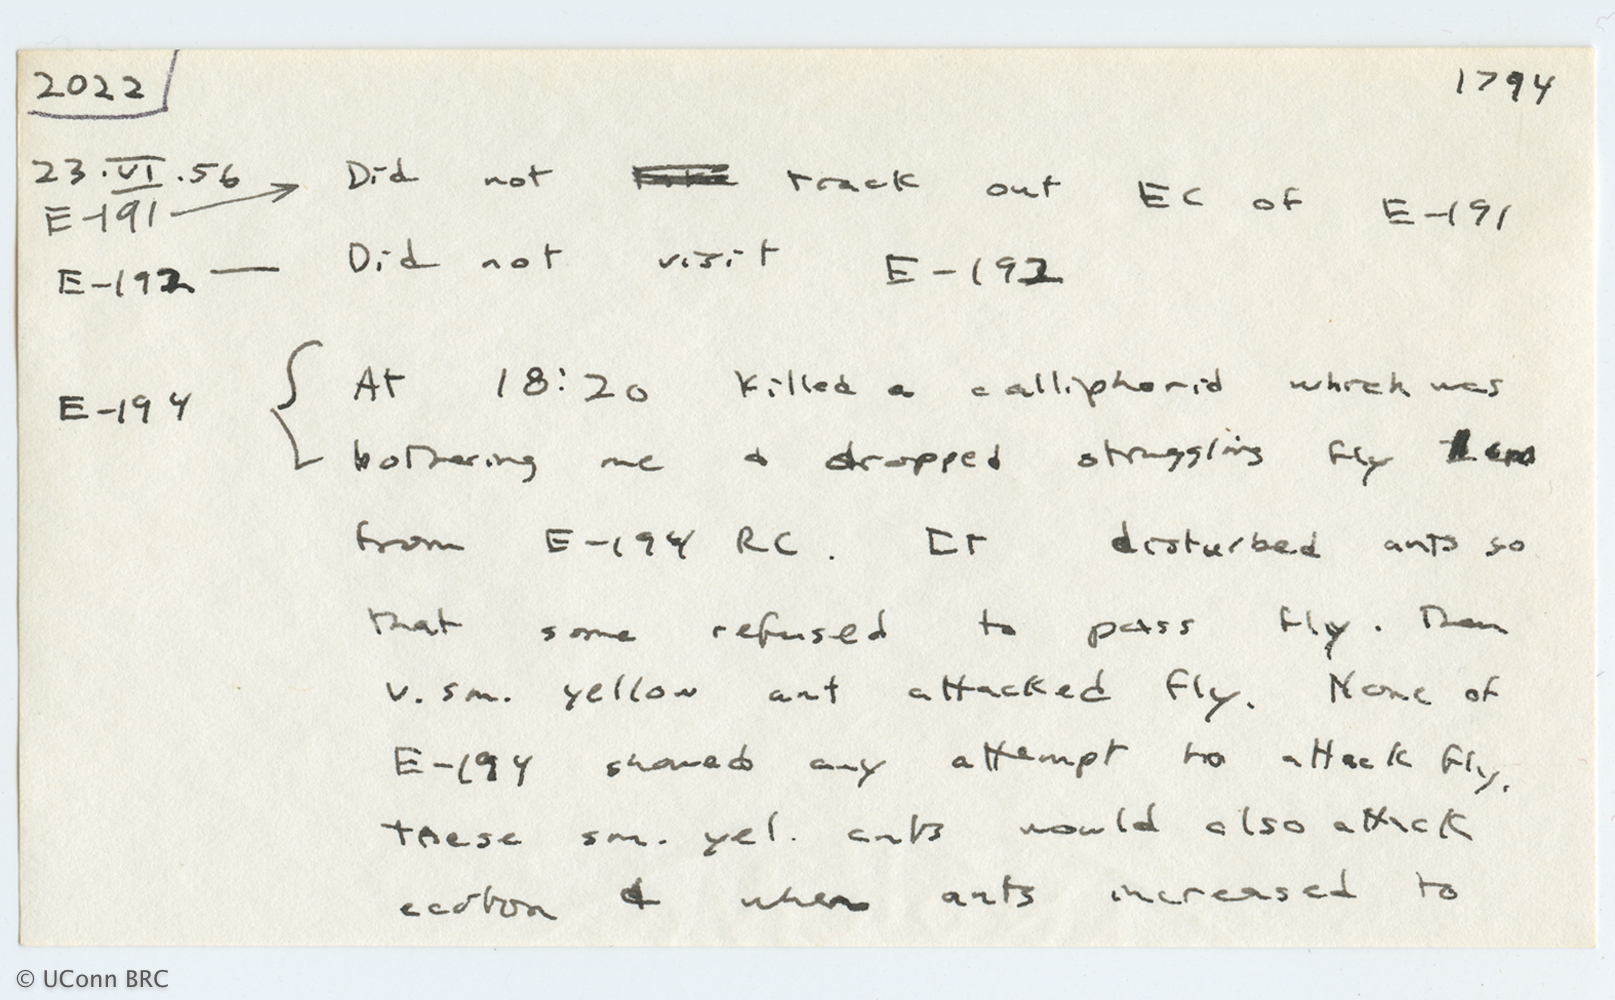 2022 1794
23.VI.56 Did not track out EC of E-191
E-191
E-192 — Did not visit E-192
E-194 { At 18:20 killed a calliphorid which was
bothering me & dropped struggling fly 1 cm
from E-194 RC. It disturbed ants so
that some refused to pass fly. Then
v. sm. yellow ant attacked fly. None of
E-194 showed any attempt to attack fly.
These sm. yel. ants would also attack
eciton & when ants increased to
© UConn BRC